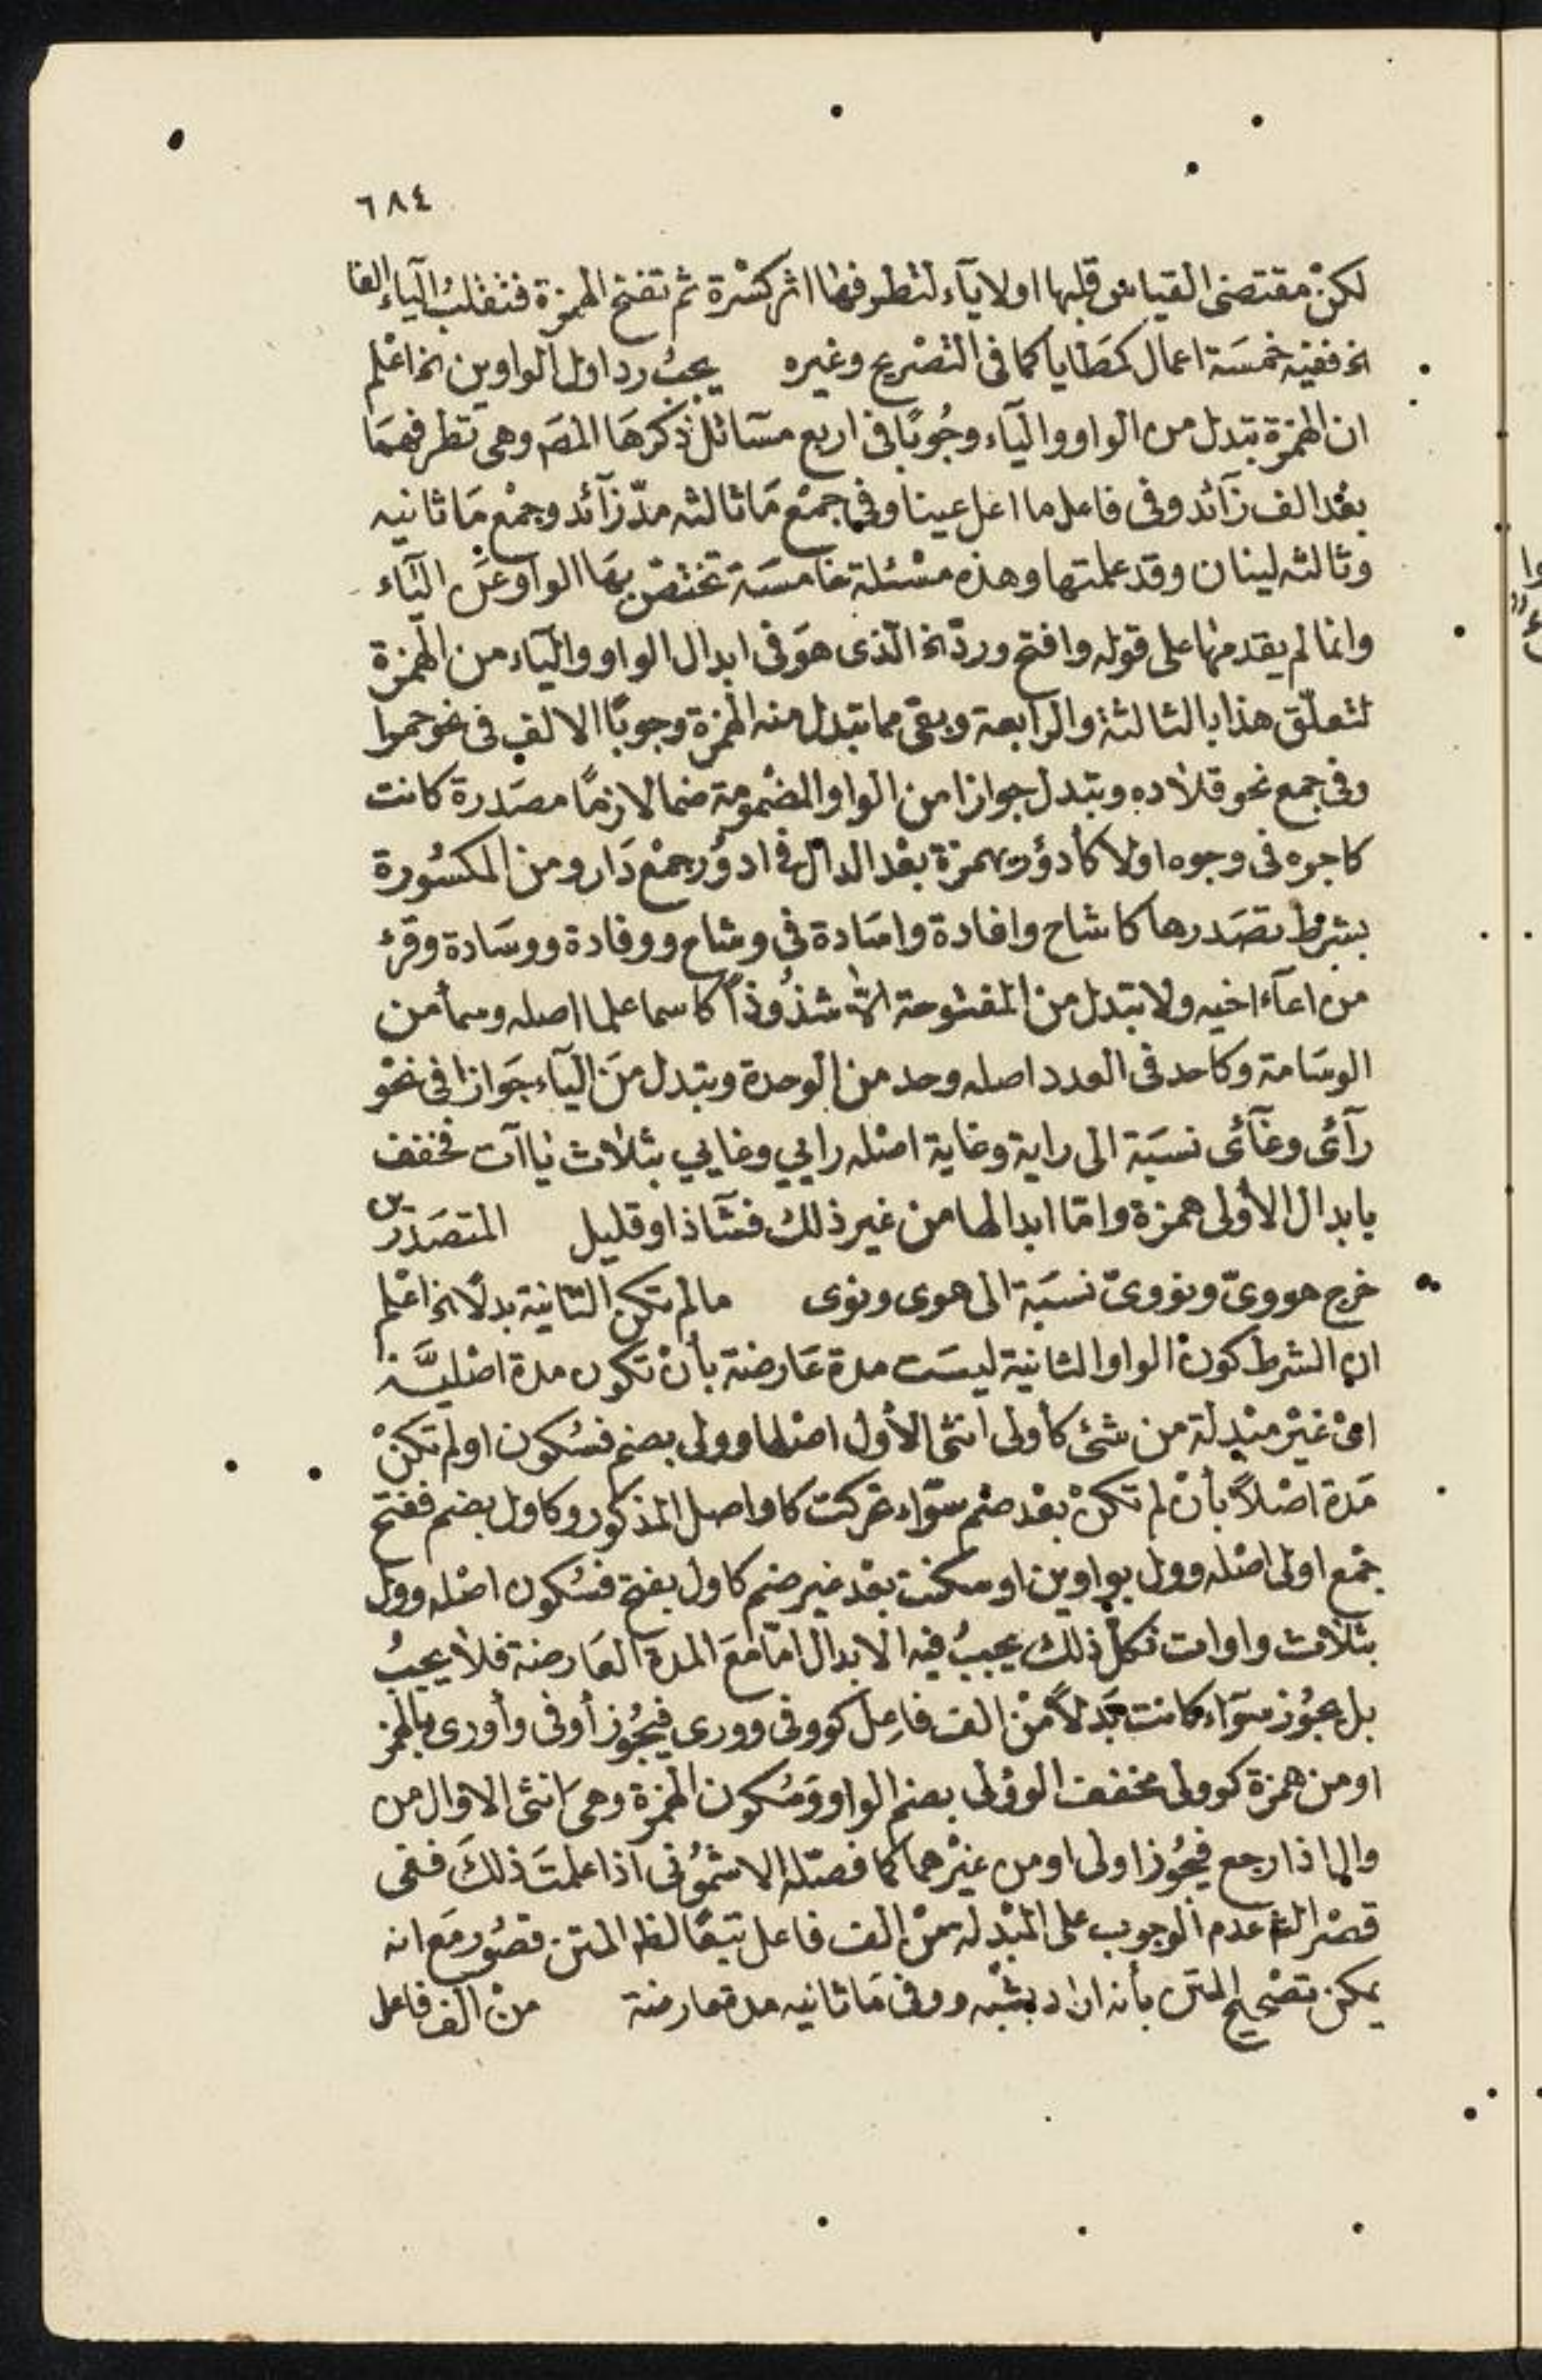 ٦٨٤
لكنْ مقتضى القياس قلبها اولا يآء لتطرفها اثر كسْرة ثم تفتح الهمزة فتقلبُ اليآء الفا
الخ ففيه خمسَة اعمال كمَطايا كما فى التصْريح وغيره يجبُ رد اول الواوين الخ اعْلم
ان الهمزة تبدل من الواو واليآء وجُوبًا فى اربع مسآئل ذكرهَا المصَ وهى تطرفهمَا
بعْد الف زآئد وفى فاعل ما اعل عينا وفى جمعْ مَا ثالثه مدّ زآئد وجمْع مَا ثانيه
وثالثه لينان وقد علمتها وهذه مسْئلة خامسَة تختصّ بهَا الواو عَن اليَاء
وانما لم يقدمها على قوله وافتح وردّ الخ الّذى هوَ فى ابدال الواو واليآء من الهمزة
لتعلّق هذا بالثالثة والرابعة وبقى مما تبدل منه الهمزة وجوبًا الالف فى نحو حمرا
وفى جمع نحو قلاده وتبدل جوازا من الواو المضْمومة ضما لازمًا مصَدرة كانت
كاجوه فى وجوه اولا كأدؤر بهمزة بعْد الدال فى ادوُر جمْع دَار ومن المكسُورة
بشرط تصَدرها كاشاح وافادة واسَادة فى وشاح ووفادة ووسَادة وقرئ
من اعآء اخيه ولا تبدل من المفتوحة الاّ شذُوذاً كاسما علما اصله وسمأ من
الوسَامة وكاحد فى العدد اصله وحد من الوحدة وتبدل منَ اليآء جَوازا فى نحْو
رآئى وغآئى نسبَة الى راية وغاية اصْله رايي وغايي بثلاث ياآت فخفف
بابدال الأولى همزة وامّا ابدالها من غير ذلك فشآذ او قليل المتصَدّرين
خرج هووىّ ونووىّ نسبَة الى هوى ونوى ما لم تكن الثانية بدلًا الخ اعْلم
ان الشرط كونْ الواو الثانية ليسَت مدة عَارضة بأنْ تكون مدة اصْليَّة
اىْ غيْر مبْدلة من شئ كأولى انثى الأول اصْلها وولى بضم فسُكون او لم تكنْ
مَدة اصْلاً بأنْ لم تكنْ بعْد ضم سوَآء تحركت كاواصل المذكور وكاول بضم ففتح
جمْع اولى اصْله وول بواوين او سكنت بعْد غير ضم كاول بفتح فسُكون اصْله وول
بثلاث واوات فكل ذلك يجبُ فيه الابدال امّا معَ المدة العَارضة فلا يجبُ
بل يجُوز سوَآء كانت بَدلاً منْ الف فاعل كووفى وورى فيجُوز أوفى وأورى بالهمز
او من همزة كوولى مخفف الوؤلى بضم الواو وَسُكون الهمزة وهى انثى الاوال من
وال اذا رجع فيجُوز اولى او من غيْرهما كما فصّله الاشمُونى اذا علمتَ ذلكَ ففى
قصْر الشَ عدم الوجوب على المبْدلة منْ الف فاعل تبعًا لظ المتن قصُور معَ انه
يمكن تصْحيح المتن بأنه اراد بشبْه ووفى مَا ثانيه مدة عارضة منْ الف فاعل